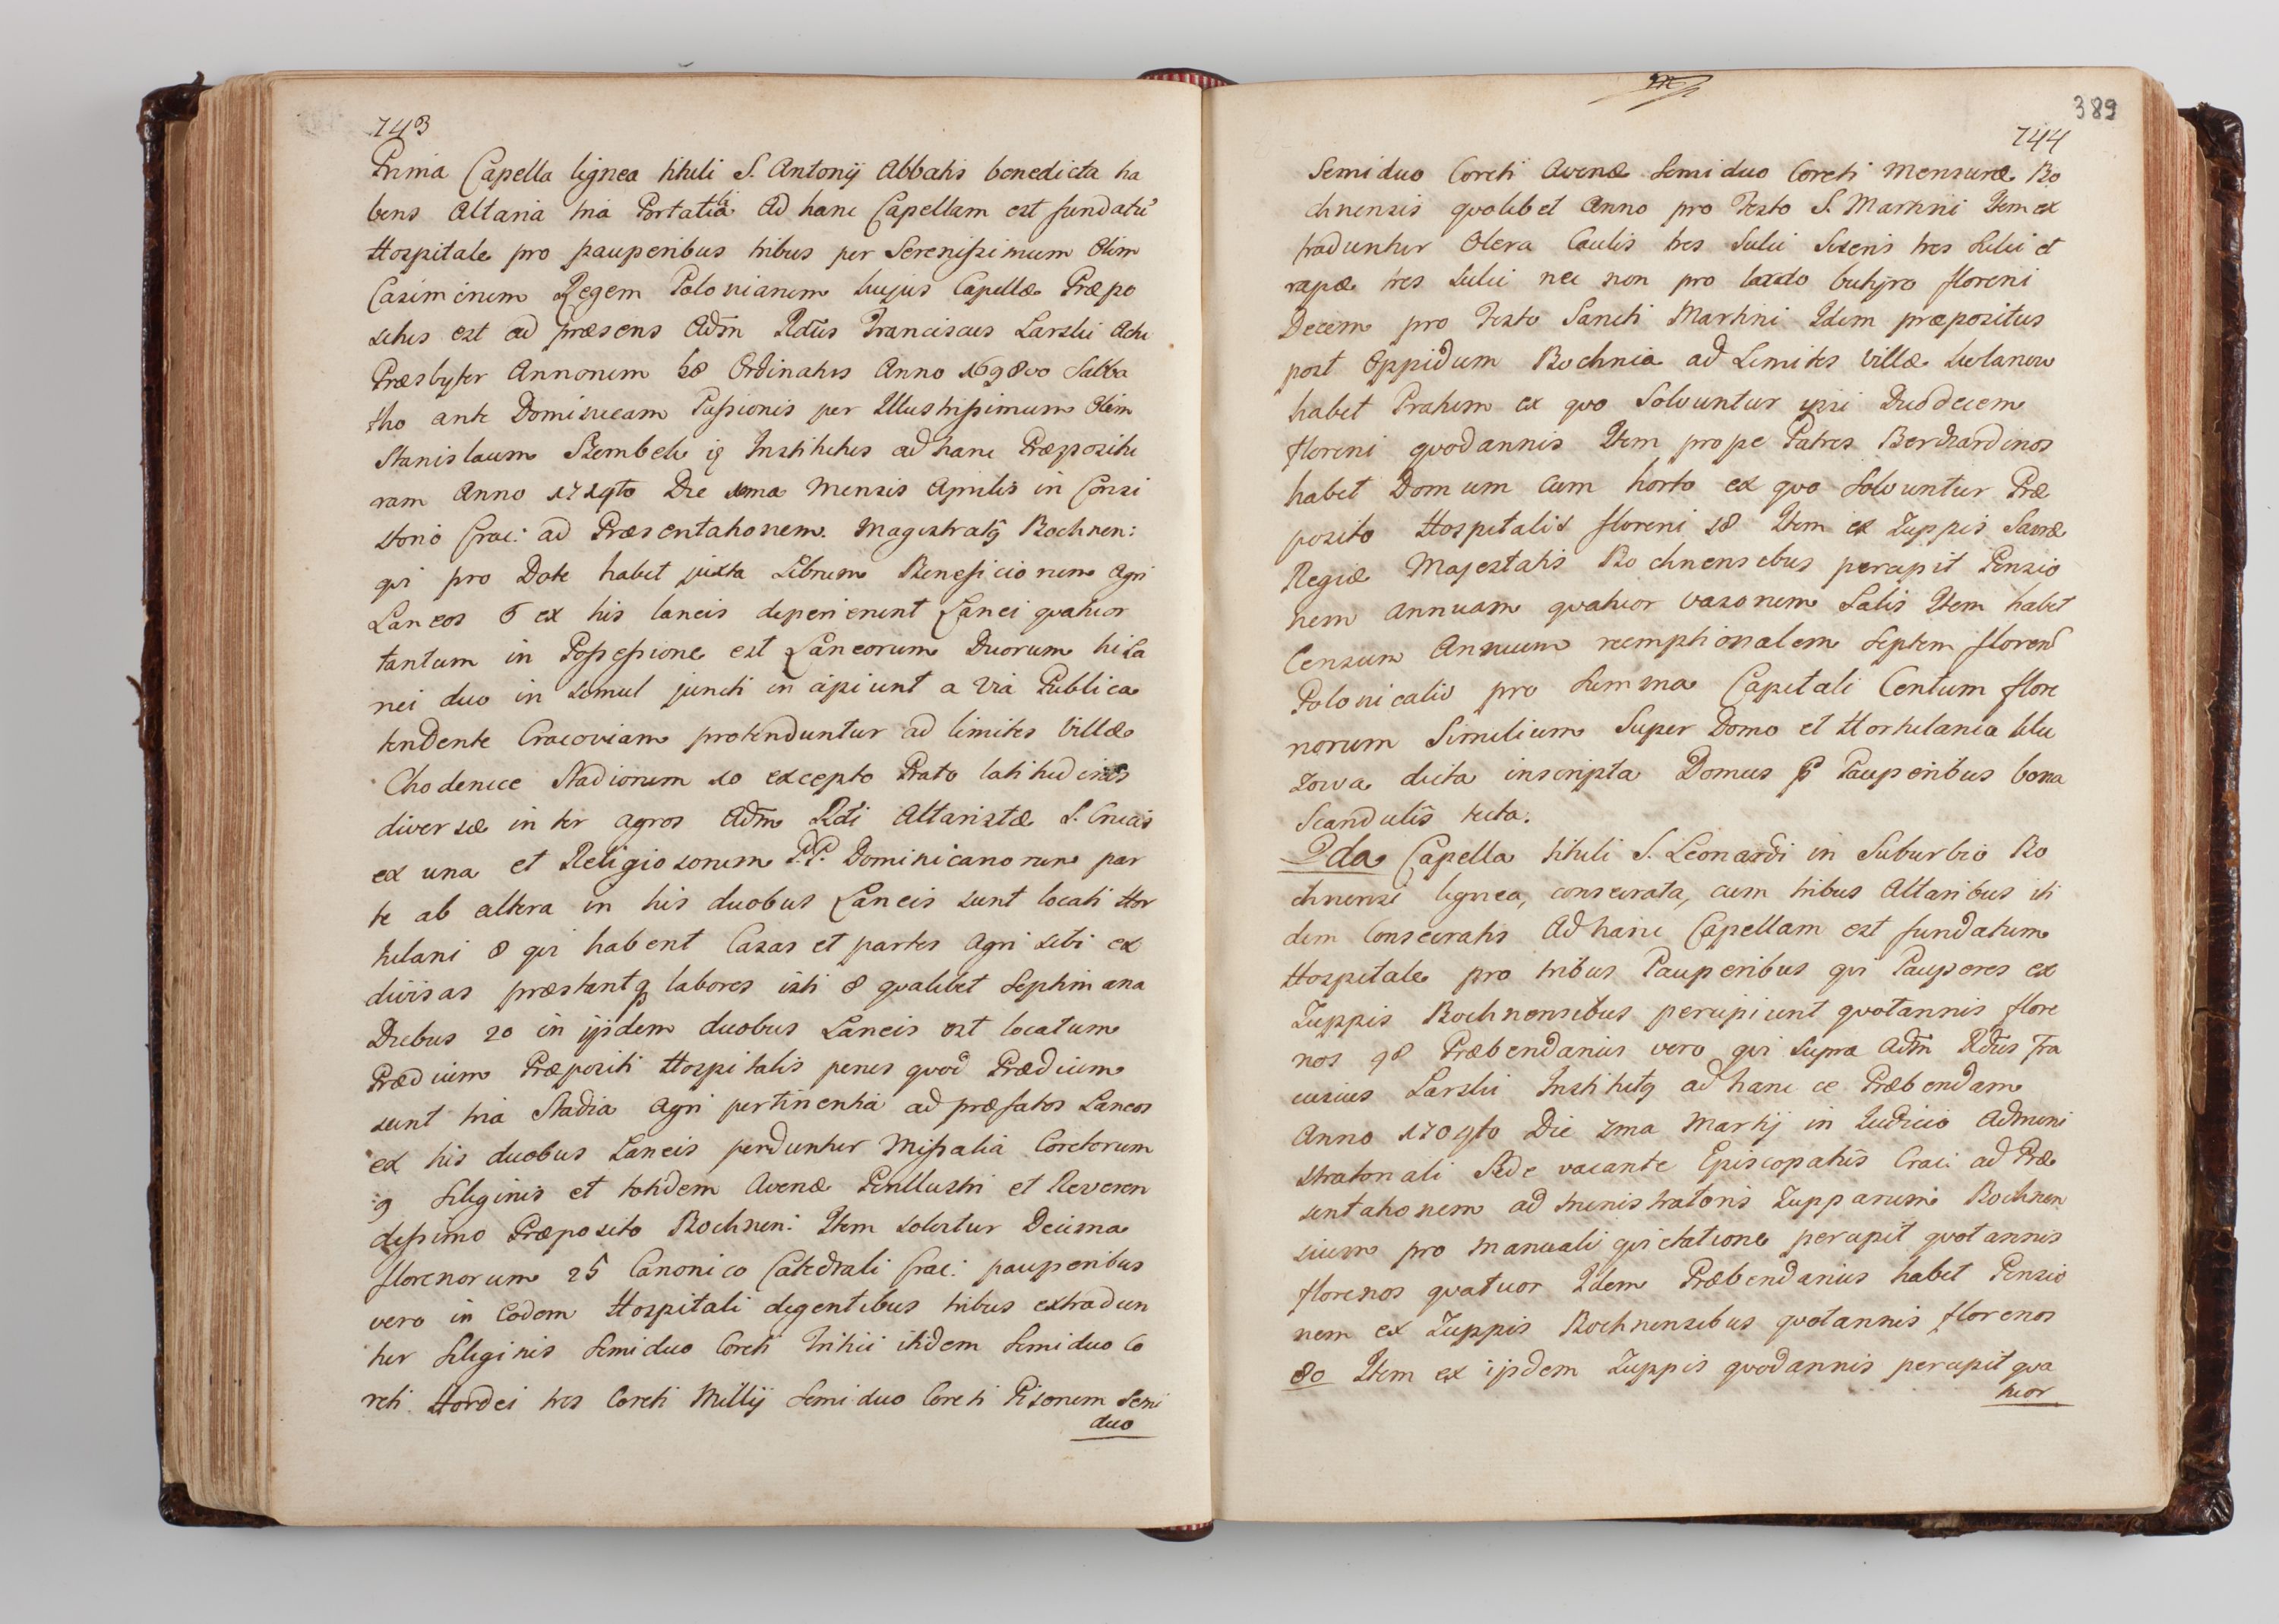 743
Prima Capella lignea tituli S. Antonij Abbatis benedicta ha
bens Altaria tria Portatilia Ad hanc Capellam est fundatū
Hospitale pro pauperibus tribus per Serenissimum Olim
Casimirum Regem Poloniarum hujus Capellæ Præpo
situs est ad præsens Adm̃ Rdũs Franciscus Larski Actu
Præsbyter Annorum 48 Ordinatus Anno 1698vo Sabba
tho ante Dominicam Passionis per Illustrissimum Olim
Stanislaum Szembek Institutus ad hanc Præpositu
ram Anno 1724to Die 1ma Mensis Aprilis in Consi
storio Crac: ad Præsentationem Magistratq Bochnen:
qvi pro Dote habet juxta Librum Beneficiorum Agri
Laneos 6 ex his laneis deperierunt Lanei qvatuor
tantum in Possessione est Laneorum Duorum hi La
nei duo in simul juncti incipiunt a via Publica
tendente Cracoviam protenduntur ad limites Villæ
Chodenice Stadiorum 10 excepto Prato latitudinis
diversæ inter agros Adm̃ Rdi Altaristæ S. Crucis
ex una et Religiosorum P.P. Dominicanorum par
te ab altera in his duobus Laneis sunt locati Hor
tulani 8 qvi habent Casas et partes Agri sibi ex
divisas præstantq labores isti 8 qvalibet Septimana
Diebus 20 in ijsdem duobus Laneis est locatum
Prædium Præpositi Hospitalis penes qvod Prædium
sunt tria Stadia Agri pertinentia ad præfatos Laneos
ex his duobus Laneis penduntur Missalia Coretorum
9 Siliginis et totidem Avenæ Perillustri et Reveren
dissimo Præposito Bochnen: Item solvitur Decima
florenorum 25 Canonico Catedrali Crac: pauperibus
vero in Eodem Hospitali degentibus tribus extradun
tur Siliginis Semiduo Coreti Tritici itidem Semiduo Co
reti Hordei tres Coreti Millij Semi duo Coreti Pisorum Semi
duo
389
744
Semiduo Coreti Avenæ Semiduo Coreti Mensuræ Bo
chnensis qvolibet Anno pro Festo S. Martini Item ex
traduntur Olera Caulis tres Sulci Siseris tres Sulci et
rapæ tres Sulci nec non pro lardo butyro floreni
Decem pro Festo Sancti Martini Idem præpositus
post Oppidum Bochnia ad Limites Villæ
habet Pratum ex qvo Solvuntur ipsi Duodecem
floreni qvodannis Item prope Patres Berhardinos
habet Domum cum horto ex qvo Solvuntur Præ
posito Hospitalis floreni 18 Item ex Zuppis Sacræ
Regiæ Majestatis Bochnensibus percipit Pensio
nem annuam qvatuor vasorum Salis Item habet
Censum Annuum reemptionalem Septem floren̄
Polonicaliũ pro Summa Capitali Centum flore
norum Similium Super Domo et Hortulania
dicta inscripta Domus p Pauperibus bona
Scandulis tecta.
2da Capella tituli S. Leonardi in Suburbio Bo
chnensi lignea, consecrata, cum tribus Altaribus iti
dem Consecratis Ad hanc Capellam est fundatum
Hospitale pro tribus Pauperibus qvi Pauperes ex
Zuppis Bochnensibus percipiunt qvotannis flore
nos 98 Præbendarius vero qvi supra Adm̃ Rdũs Fra
ciscus Larski Institutq ad hanc ce Præbendam
Anno 1709to Die 7ma Martij in Judicio Admini
stratoriali Sede vacante Episcopatus Crac: ad Præ
sentationem administratoris Zupparum Bochnen
sium pro manuali qvietatione percipit qvotannis
florenos qvatuor Idem Præbendarius habet Pensio
nem ex Zuppis Bochnensibus qvotannis florenos
80 Item ex ijsdem Zuppis qvodannis percipit qva
tuor